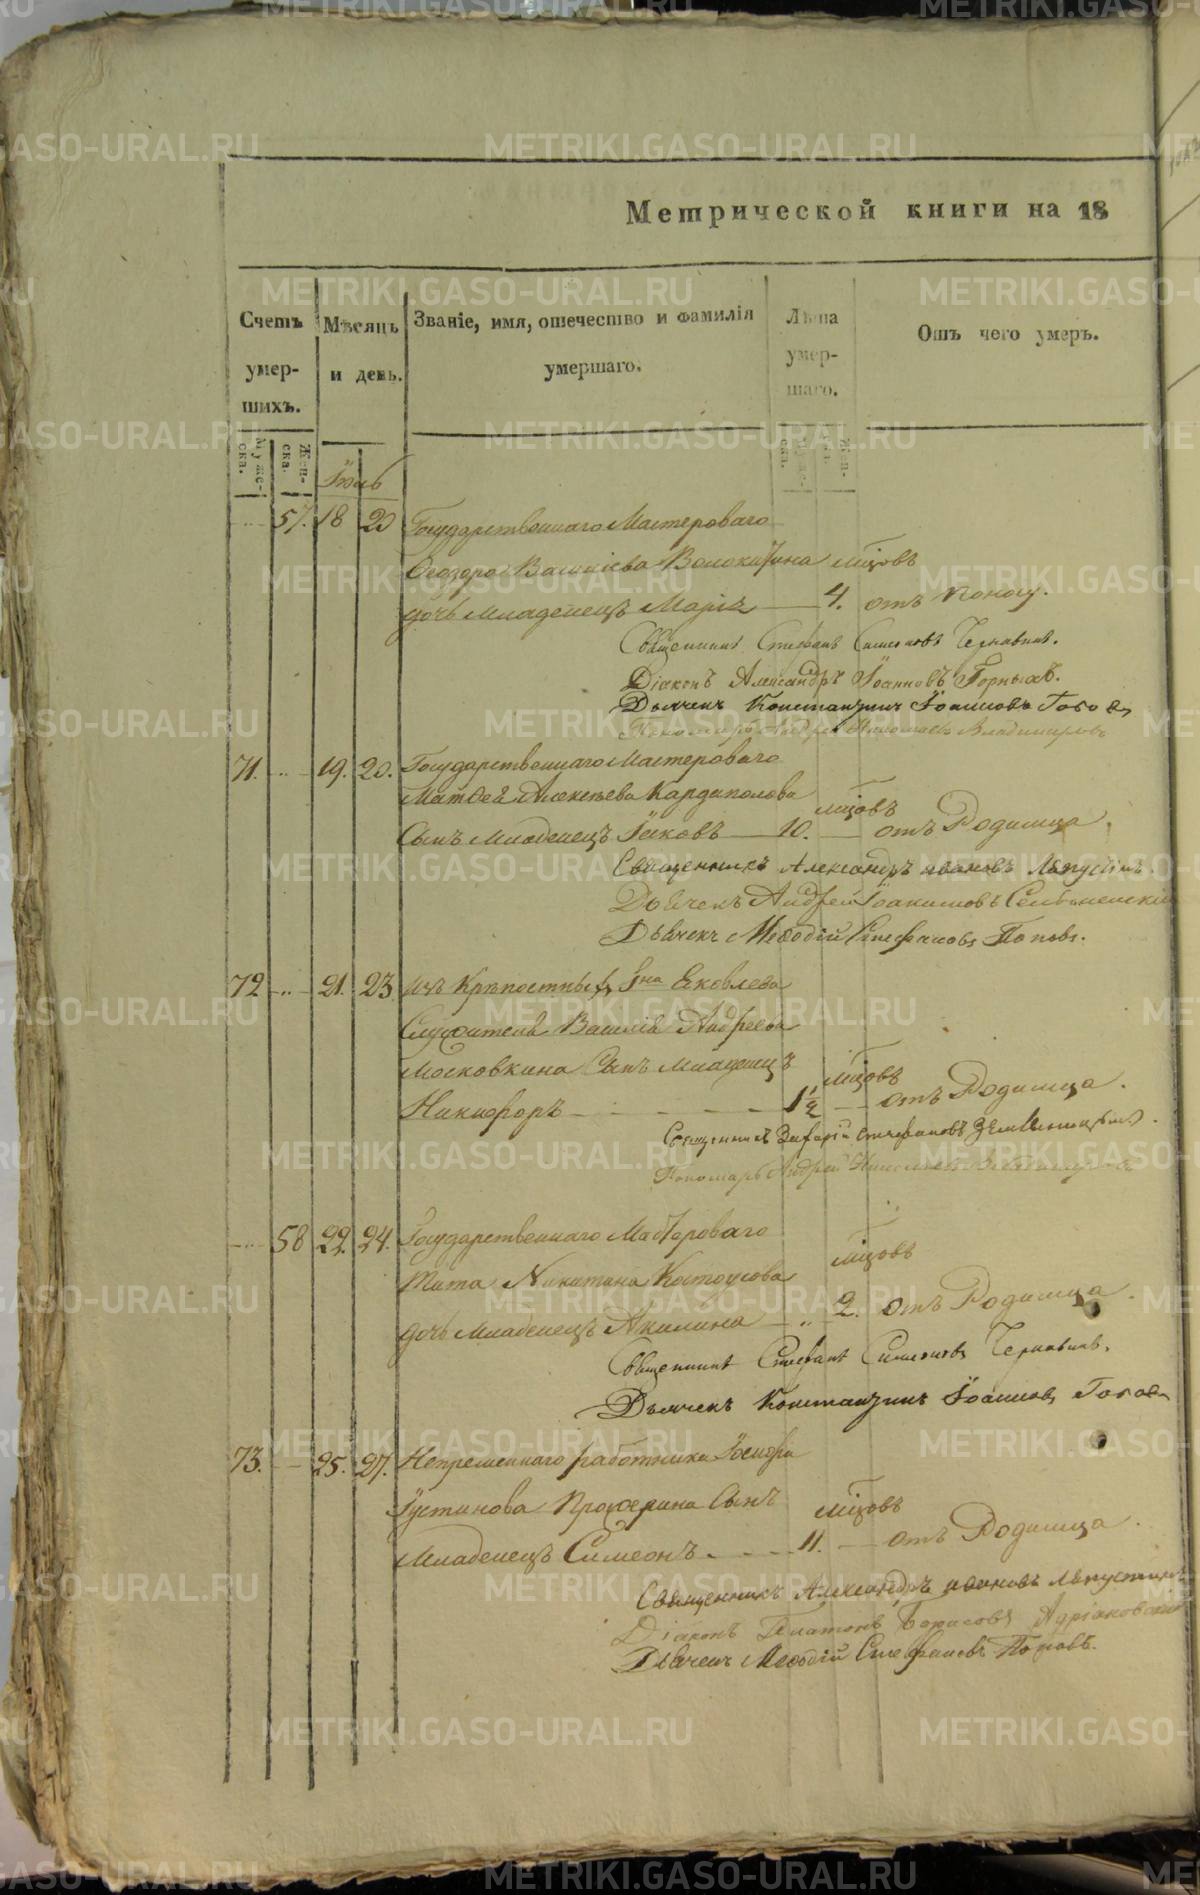 Метрической книги на 18
Счетъ умер- шихъ.
Муже- ска.
Жен- ска.
Мѣсяцъ и день.
Званіе, имя, отечество и фамилія умершаго.
Лѣта умер- шаго.
Муже- ска.
Жен- ска.
Отъ чего умеръ.
57. 18 20 Государственнаго Мастероваго
Ѳеодора Волокитина мцовъ
дочь младенецъ Марія 4. отъ поносу.
Священникъ Стефанъ Симеоновъ Чернавинъ.
Діаконъ Александръ Іоанновъ Горныхъ.
Дьячекъ Константинъ Іоанновъ
Пономарь Андрей Николаевъ Владимировъ
71. 19. 20. Государственнаго Мастероваго
Матѳея Алексѣева Кардаполова мцовъ
Сынъ младенецъ Іяковъ 10. отъ Родимца.
Священникъ Александръ Ивановъ Ляпустинъ.
Дьячекъ Андрей Іоакимовъ
Дьячекъ Меѳодій Стефановъ Поповъ.
72 21. 23. изъ Крѣпостныхъ Гна Яковлева
Служителя Василія Андреева
Московкина Сынъ младенецъ мцовъ
Никифоръ 1½ отъ Родимца.
Священникъ Захарій Стефановъ
Пономарь Андрей Николаевъ Владимировъ
58 22. 24. Государственнаго Мастероваго
Тита Никитина Костоусова мцовъ
дочь младенецъ Акилина 2. отъ Родимца.
Священникъ Стефанъ Симеоновъ Чернавинъ.
Дьячекъ Константинъ Іоанновъ
73. 25. 27. Непременнаго работника
Іустинова Прожерина Сынъ мцовъ
Младенецъ Симеонъ. 11. отъ Родимца.
Священникъ Александръ Ивановъ Ляпустинъ
Діаконъ Платонъ Борисовъ Адріановскій
Дьячекъ Меѳодій Стефановъ Поповъ.
METRIKI.GASO-URAL.RU